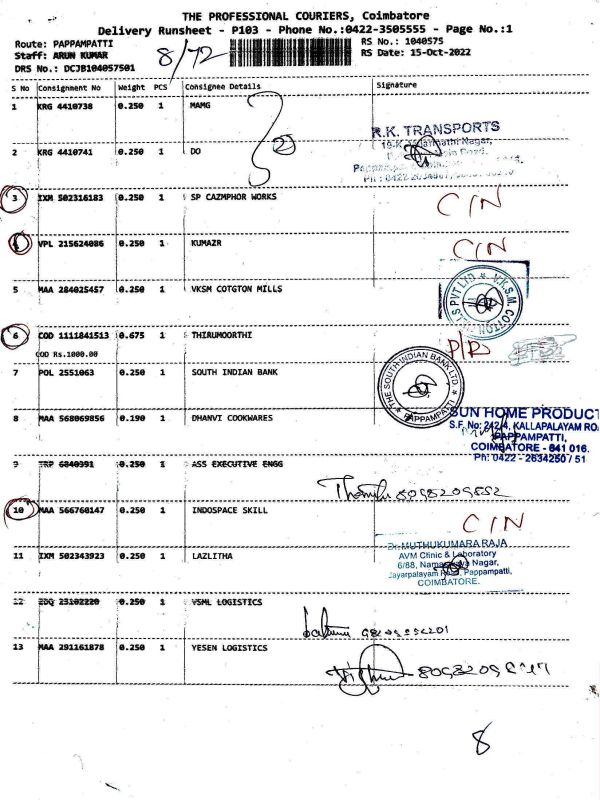 THE PROFESSIONAL COURIERS, Coimbatore
Delivery Runsheet - P103 - Phone No.:0422-3505555 - Page No.:1
Route: PAPPAMPATTI RS No.: 1040575
Staff: ARUN KUMAR 8/72 RS Date: 15-Oct-2022
DRS No.: DCJB104057501
S No Consignment No Weight PCS Consignee Details Signature
1 KRG 4410738 0.250 1 MAMG
R.K. TRANSPORTS
2 KRG 4410741 0.250 1 DO 2
3 IXM 502316183 0.250 1 SP CAZMPHOR WORKS C/N
VPL 215624086 0.250 1 KUMAZR C/N
5 MAA 284025457 0.250 1 VKSM COTGTON MILLS
V.K.S.M. COTTON MILLS PVT LTD
6 COD 1111841513 0.675 1 THIRUMOORTHI
COD Rs.1000.00
7 POL 2551063 0.250 1 SOUTH INDIAN BANK
THE SOUTH INDIAN BANK LTD. PAPPAMPATTI
8 MAA 568069856 0.190 1 DHANVI COOKWARES
SUN HOME PRODUCT
S.F. No: 242/4, KALLAPALAYAM RO
PAPPAMPATTI,
COIMBATORE - 641 016.
Ph: 0422 - 2634250 / 51
9 TRP 6840391 0.250 1 ASS EXECUTIVE ENGG
10 MAA 566760147 0.250 1 INDOSPACE SKILL C/N
11 IXM 502343923 0.250 1 LAZLITHA
Dr. MUTHUKUMARA RAJA
AVM Clinic & Laboratory
6/88, Nagar,
Jayarpalayam Pappampatti,
COIMBATORE.
12 EDQ 23102220 0.250 1 VSML LOGISTICS
13 MAA 291161878 0.250 1 YESEN LOGISTICS
8